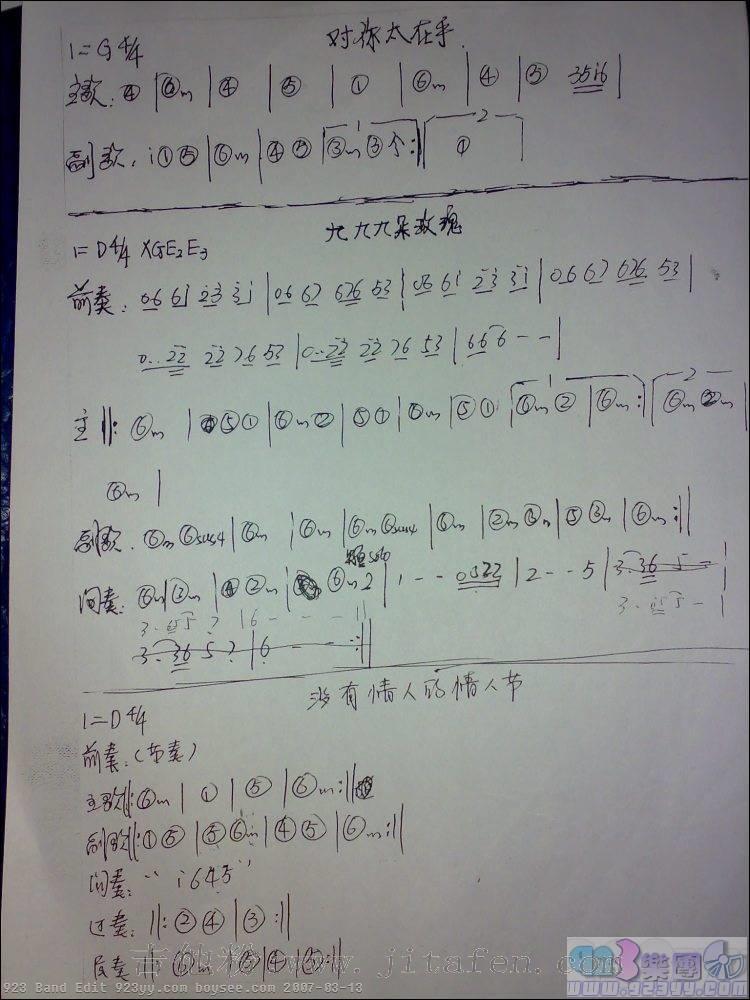 对你太在乎
1=G 4/4
主歌: ④ | ⑥m | ④ | ⑤ | ① | ⑥m | ④ | ⑤ 35i6 |
副歌: i ① ⑤ | ⑥m | ④ ⑤ | ③m ③ 个 :| ① |
九九九朵玫瑰
1=D 4/4 XGE2E3
前奏: 06 6i 23 3i | 06 67 676 53 | 06 6i 23 3i | 06 67 676 53 |
0..22 22 76 53 | 0..22 22 76 53 | 66 6 - - |
主 ||: ⑥m | ④ ⑤ ① | ⑥m ② | ⑤ ① | ⑥m | ⑤ ① | ⑥m ② | ⑥m :| ⑥m ②m |
⑥m |
副歌. ⑥m ⑥sus4 | ⑥m | ⑥m | ⑥m ⑥sus4 | ⑥m | ②m ③m | ⑤ ③m | ⑥m :||
间奏: ⑥m | ③m | ④ ②m | ⑥m 2 | 1 - - 0322 | 2 - - 5 | 3. 36 5 - |
3. 65 5 ? | 6 - - - || 3. 65 5 - |
3. 36 5 ? | 6 - - - :||
没有情人的情人节
1=D 4/4
前奏: (节奏)
主歌 ||: ⑥m | ① | ⑤ | ⑥m :||
副歌 ||: ① ⑤ | ⑤ ⑥m | ④ ⑤ | ⑥m :||
间奏: “i645”
过奏: ||: ② ④ | ③ :||
吉他粉 www.jitafen.com
923 Band Edit 923yy.com boysee.com 2007-03-13
923樂團
www.923yy.com